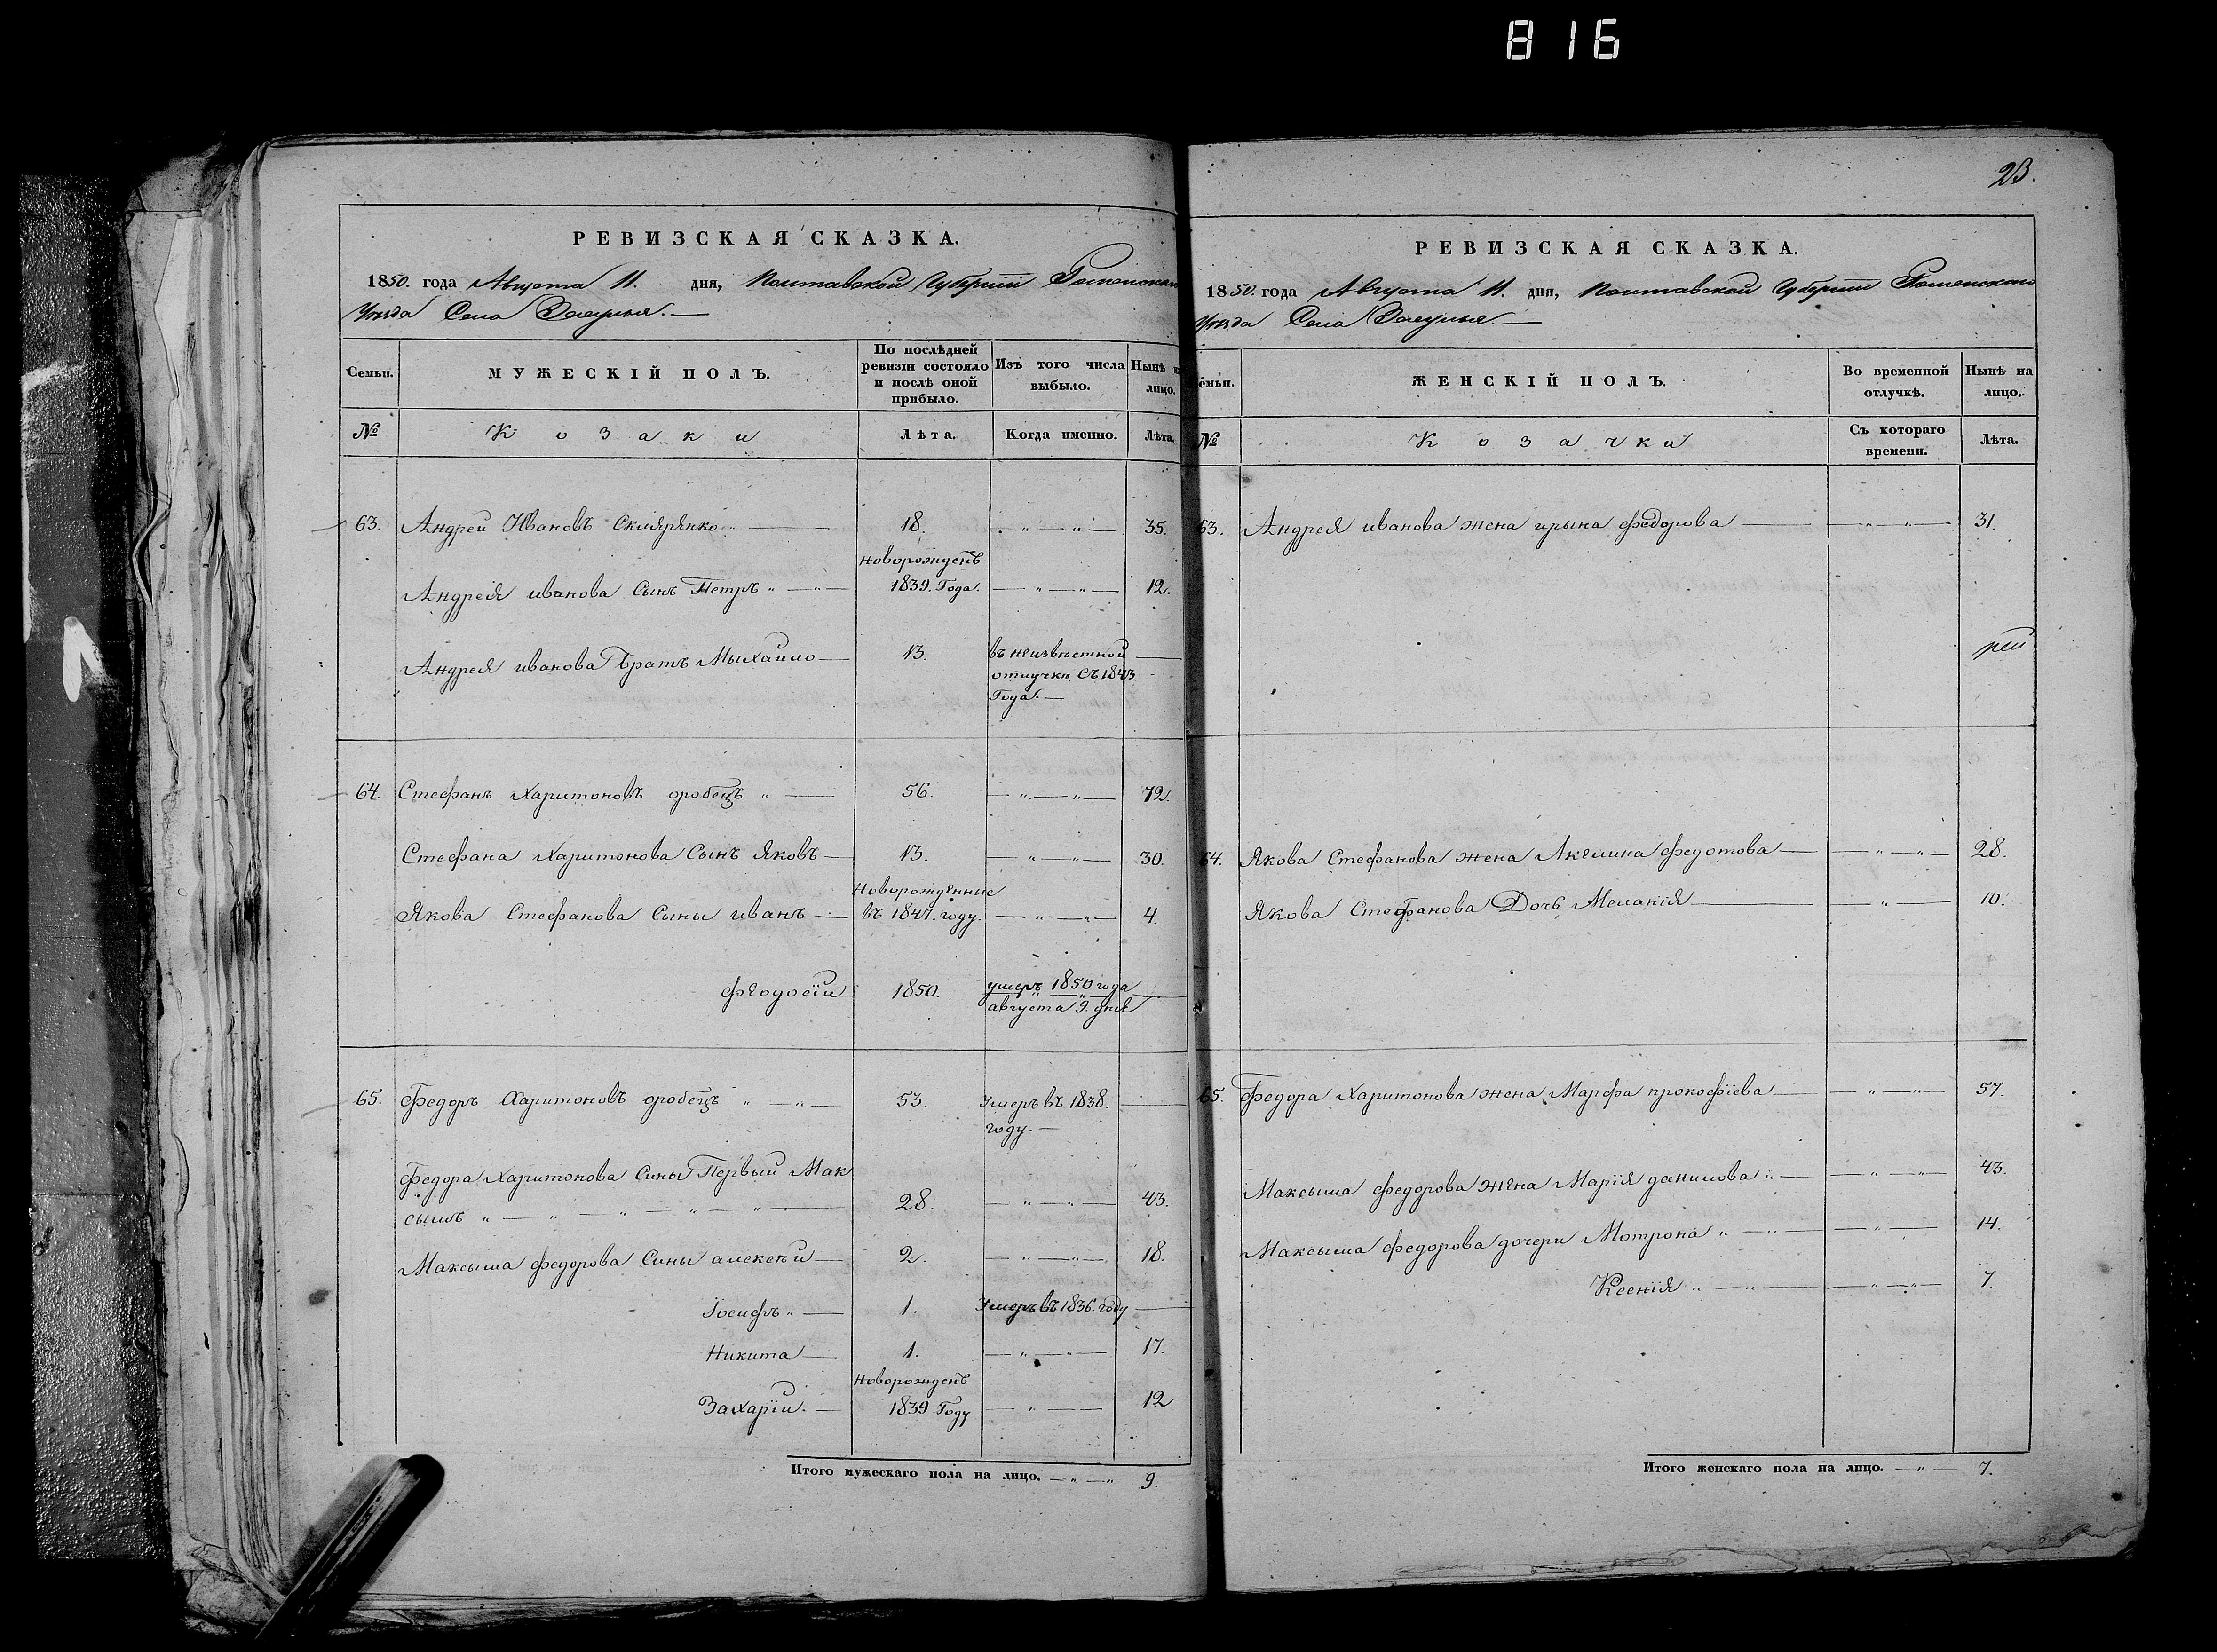 816
РЕВИЗСКАЯ СКАЗКА.
1850. года Августа 11. дня, Полтавской Губернии Роменскаго
Уезда Села Засулья. —
Семьи.
МУЖЕСКІЙ ПОЛЪ.
По послѣдней ревизіи состояло и послѣ оной прибыло.
Изъ того числа выбыло.
Нынѣ на лицо.
№
Козаки
Лѣта.
Когда именно.
Лѣта.
63. Андрей Ивановъ Склярянко 18. — „ — „ — 35.
Новорожденъ
Андрея иванова Сынъ Петръ „ — „ — 1839. Года. — „ — „ — 12.
Андрея иванова Братъ Мыхайло — 13. въ неизвѣстной —
отлучкѣ Съ 1843
Года. —
64. Стефанъ Харитоновъ оробецъ „ — 56. — „ — „ — 72.
Стефана Харитонова Сынъ Яковъ — 13. — „ — „ — 30.
Новорожденные
Якова Стефанова Сыны иванъ — въ 1847. году. — „ — „ — 4.
Феодосій — 1850. умеръ 1850 года
августа 9. дня
65. Федоръ Харитоновъ оробецъ „ — „ — 53. Умеръ въ 1838. —
году. —
Федора Харитонова Сины Первый Мак
сымъ „ — „ — „ — „ — „ — 28. — „ — „ — 43.
Максыма федорова Сины алексѣй — 2. — „ — „ — 18.
Іосифъ „ — 1. Умеръ въ 1836. году —
Никита — 1. — „ — „ — 17.
Новорожденъ
Захарій. — 1839 Году — „ — 12
Итого мужескаго пола на лицо. — „ — „ 9.
23.
РЕВИЗСКАЯ СКАЗКА.
1850. года Августа 11. дня, Полтавской Губернии Роменскаго
Уезда Села Засулья. —
емьи.
ЖЕНСКІЙ ПОЛЪ.
Во временной отлучкѣ.
Нынѣ на лицо.
№
Козачки
Съ котораго времени.
Лѣта.
63. Андрея иванова жена ирына федорова — „ — „ — 31.
64. Якова Стефанова жена Акелина федотова — „ — „ — 28.
Якова Стефанова Дочь Меланія — „ — 10.
65. Федора Харитонова жена Марфа прокофіева — „ — „ — 57.
Максыма федорова жена Марія данилова „ — „ — „ — 43.
Максыма федорова дочери Мотрона „ — „ — „ — 14.
Ксенія „ — „ — „ — „ — 7.
Итого женскаго пола на лицо. — „ — 7.